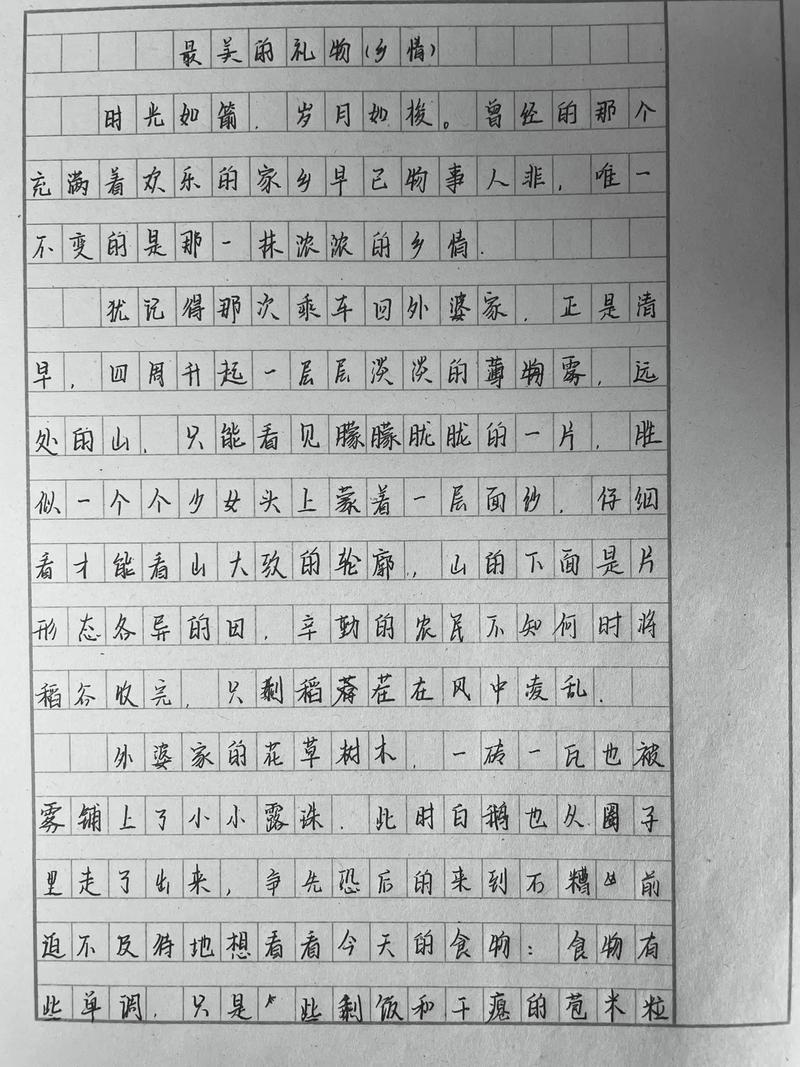 最美的礼物(乡情)
时光如箭，岁月如梭。曾经的那个
充满着欢乐的家乡早已物事人非，唯一
不变的是那一抹浓浓的乡情.
犹记得那次乘车回外婆家，正是清
早，四周升起一层层淡淡的薄雾，远
处的山，只能看见朦朦胧胧的一片，胜
似一个个少女头上蒙着一层面纱，仔细
看才能看山大致的轮廓，山的下面是片
形态各异的田，辛勤的农民不知何时将
稻谷收完，只剩稻茬在风中凌乱.
外婆家的花草树木，一砖一瓦也被
雾铺上了小小露珠.此时白鹅也从圈子
里走了出来，争先恐后的来到石糟前
迫不及待地想看看今天的食物：食物有
些单调，只是些剩饭和干瘪的苞米粒